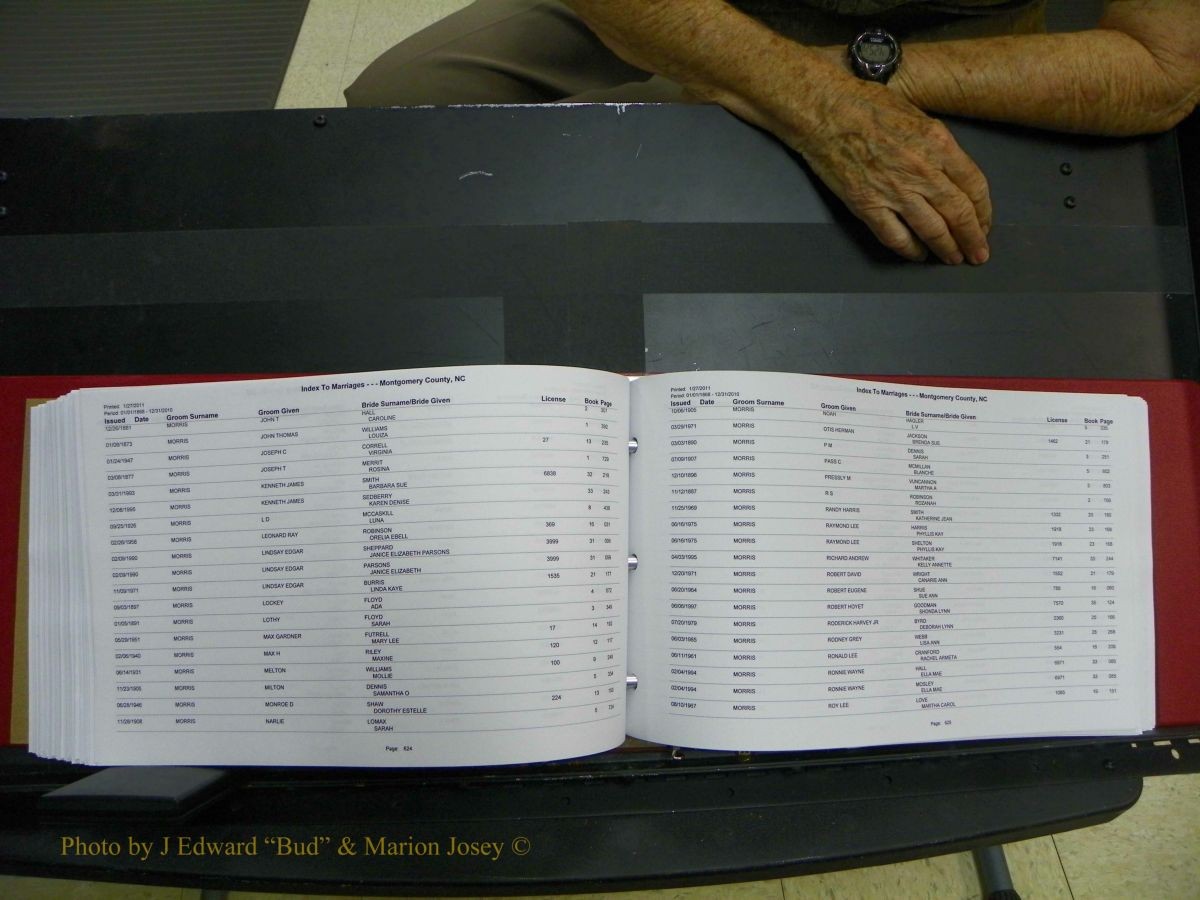 Index To Marriages - - - Montgomery County, NC
Printed: 1/27/2011
Period: 01/01/1868 - 12/31/2010
Issued Date Groom Surname Groom Given Bride Surname/Bride Given License Book Page
12/20/1881 MORRIS JOHN T HALL
CAROLINE
01/09/1873 MORRIS JOHN THOMAS WILLIAMS 1
LOUIZA
01/24/1947 MORRIS JOSEPH C CORRELL 27 13 235
VIRGINIA
03/08/1877 MORRIS JOSEPH T MERRIT 1 729
ROSINA
03/31/1993 MORRIS KENNETH JAMES SMITH 6838 32 218
BARBARA SUE
12/08/1995 MORRIS KENNETH JAMES SEDBERRY 33
KAREN DENISE
09/25/1926 MORRIS L D MCCASKILL 8
LUNA
02/26/1956 MORRIS LEONARD RAY ROBINSON 369 16
ORELIA EBELL
02/09/1990 MORRIS LINDSAY EDGAR SHEPPARD 3999 31
JANICE ELIZABETH PARSONS
02/09/1990 MORRIS LINDSAY EDGAR PARSONS 3999 31
JANICE ELIZABETH
11/09/1971 MORRIS LINDSAY EDGAR BURRIS 1535 21 171
LINDA KAYE
09/03/1897 MORRIS LOCKEY FLOYD 4
ADA
01/05/1891 MORRIS LOTHY FLOYD 3
SARAH
06/29/1951 MORRIS MAX GARDNER FUTRELL 17 14
MARY LEE
02/06/1940 MORRIS MAX H RILEY 120 12 117
MAXINE
06/14/1931 MORRIS MELTON WILLIAMS 100 9
MOLLIE
11/23/1905 MORRIS MILTON DENNIS 5
SAMANTHA O
06/28/1946 MORRIS MONROE D SHAW 224 13
DOROTHY ESTELLE
11/28/1908 MORRIS NARLIE LOMAX 5
SARAH
Page: 624
Index To Marriages - - - Montgomery County, NC
Printed: 1/27/2011
Period: 01/01/1868 - 12/31/2010
Issued Date Groom Surname Groom Given Bride Surname/Bride Given License Book Page
10/06/1905 MORRIS NOAH HAGLER
L V
03/29/1971 MORRIS OTIS HERMAN JACKSON 1462 21 179
BRENDA SUE
03/03/1890 MORRIS P M DENNIS 3 251
SARAH
07/09/1907 MORRIS PASS C MCMILLAN 5
BLANCHE
12/10/1896 MORRIS PRESSLY M VUNCANNON
MARTHA A
11/12/1887 MORRIS R S ROBINSON
ROZANAH
11/25/1969 MORRIS RANDY HARRIS SMITH 1332 20
KATHERINE JEAN
06/16/1975 MORRIS RAYMOND LEE HARRIS 1918 23
PHYLLIS KAY
06/16/1975 MORRIS RAYMOND LEE SHELTON 1918 23
PHYLLIS KAY
04/03/1995 MORRIS RICHARD ANDREW WHITAKER 7141 244
KELLY ANNETTE
12/20/1971 MORRIS ROBERT DAVID WRIGHT 1552 21 179
CANARIE ANN
06/20/1964 MORRIS ROBERT EUGENE SHUE
SUE ANN
06/06/1997 MORRIS ROBERT HOYET GOODMAN 7570 124
SHONDA LYNN
07/20/1979 MORRIS RODERICK HARVEY JR BYRD 2360 25
DEBORAH LYNN
06/03/1985 MORRIS RODNEY GREY WEBB 3231 28
LISA ANN
06/11/1961 MORRIS RONALD LEE CRANFORD
RACHEL ARMETA
02/04/1994 MORRIS RONNIE WAYNE HALL 6971 33
ELLA MAE
02/04/1994 MORRIS RONNIE WAYNE MOSLEY 6971 33
ELLA MAE
08/10/1967 MORRIS ROY LEE LOVE 1065 19 151
MARTHA CAROL
Page: 625
Photo by J Edward “Bud” & Marion Josey ©